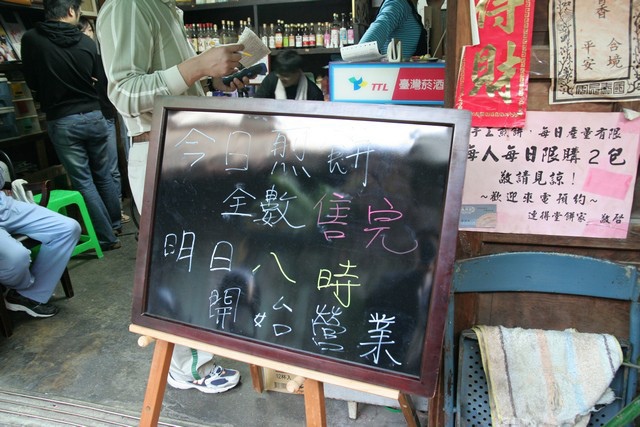 今日煎餅
全數售完
明日八時
開始營業
TTL 臺灣菸酒
得
財
香
合境
平安
手工煎餅，每日產量有限
每人每日限購2包
敬請見諒!
~歡迎來電預約~
連得堂餅家 敬啓